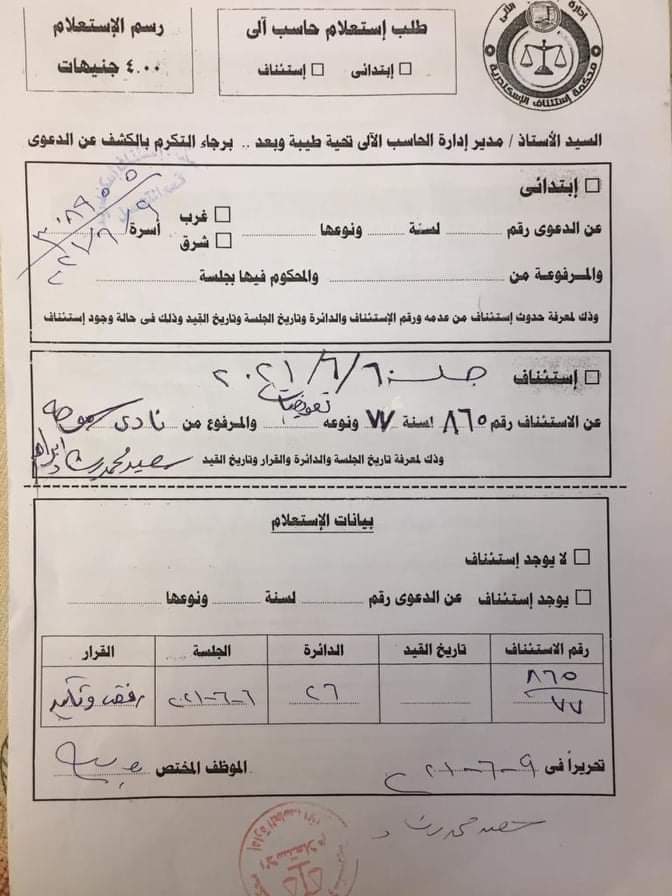 رسم الإستعلام
٤.٠٠ جنيهات
طلب إستعلام حاسب آلى
إبتدائى إستئناف
إدارة الحاسب الآلى
محكمة إستئناف الإسكندرية
السيد الأستاذ / مدير إدارة الحاسب الآلى تحية طيبة وبعد .. برجاء التكرم بالكشف عن الدعوى
إبتدائى
عن الدعوى رقم ........ لسنة ........ ونوعها ........ غرب أسرة/
شرق
٢٠٢١/٦/٩
والمرفوعة من ........ والمحكوم فيها بجلسة ........
وذك لمعرفة حدوث إستئناف من عدمه ورقم الإستئناف والدائرة وتاريخ الجلسة وتاريخ القيد وذلك فى حالة وجود إستئناف
إستئناف جلسة ٢٠٢١/٦/٦
تعويضات
عن الاستئناف رقم ٨٦٥ لسنة ٧٧ ونوعه ........ والمرفوع من نادى سموحه
وذك لمعرفة تاريخ الجلسة والدائرة والقرار وتاريخ القيد سعيد محمد رشاد ابراهيم
بيانات الإستعلام
لا يوجد إستئناف
يوجد إستئناف عن الدعوى رقم ........ لسنة ........ ونوعها ........
رقم الاستئناف تاريخ القيد الدائرة الجلسة القرار
٨٦٥
٧٧ ٢٦ ٦-٦-٢٠٢١ رفض وتأييد
تحريراً فى ٩-٦-٢٠٢١ الموظف المختص
سعيد محمد رشاد